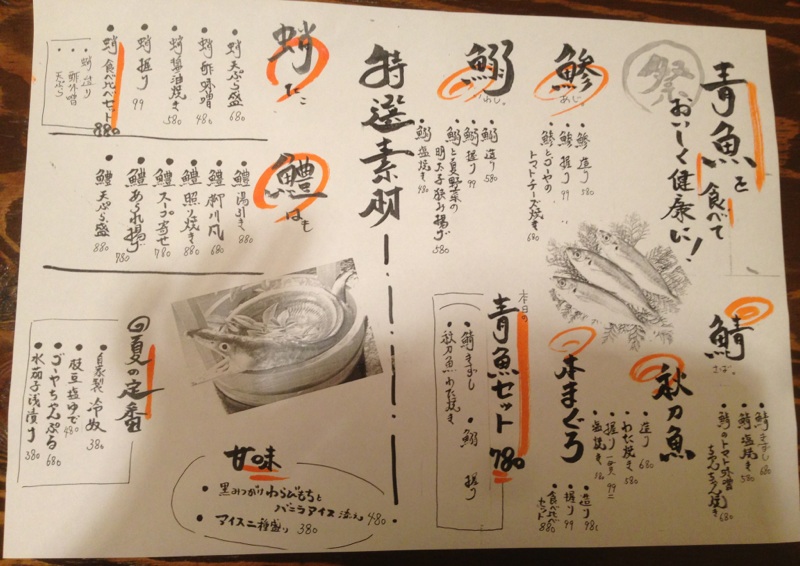 青魚を食べて
おいしく健康に!
祭
鯖
さば。
鯖きずし 680
鯖塩焼き 580
鯖のトマト味噌
ちゃんちゃん焼き 680
鯵
あじ。
鯵造り 580
鯵握り 99
鯵とゴーヤの
トマトチーズ焼き 680
秋刀魚
造り 680
わた焼き 580
握り 一貫 99
塩焼き
鰯
いわし。
鰯造り 580
鰯握り 99
鰯と夏野菜の
明太子挟み揚げ 580
鰯塩焼き 480
本まぐろ
造り 980
握り 99
食べ比べ
セット 880
本日の
青魚セット 780
鯖きずし 鰯握り
秋刀魚わた焼き
特選素羽
蛸
たこ
蛸天ぷら盛 680
蛸酢味噌 480
蛸醤油焼き 580
蛸握り 99
蛸食べ比べセット 880
蛸造り
酢味噌
天ぷら
鱧
はも
鱧湯引き 880
鱧柳川風 680
鱧照り焼き 880
鱧スープ寄せ 780
鱧あられ揚げ 780
鱧天ぷら盛 880
夏の定番
自家製冷奴 380
枝豆塩ゆで 480
ゴーヤちゃんぷる 680
水茄子浅漬け 380
甘味
黒みつがけわらびもちと
バニラアイス添え 480
アイス二種盛り 380